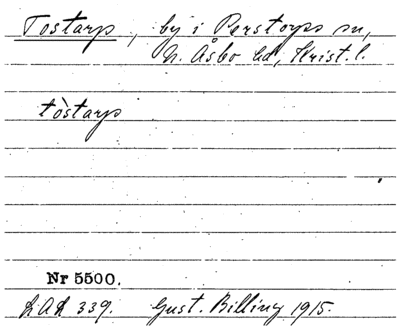 Tostarp, by i Perstorps sn,
N. Åsbo hd, Krist. l.
tòstarp
Nr 5500.
LAL 339. Gust. Billing 1915.